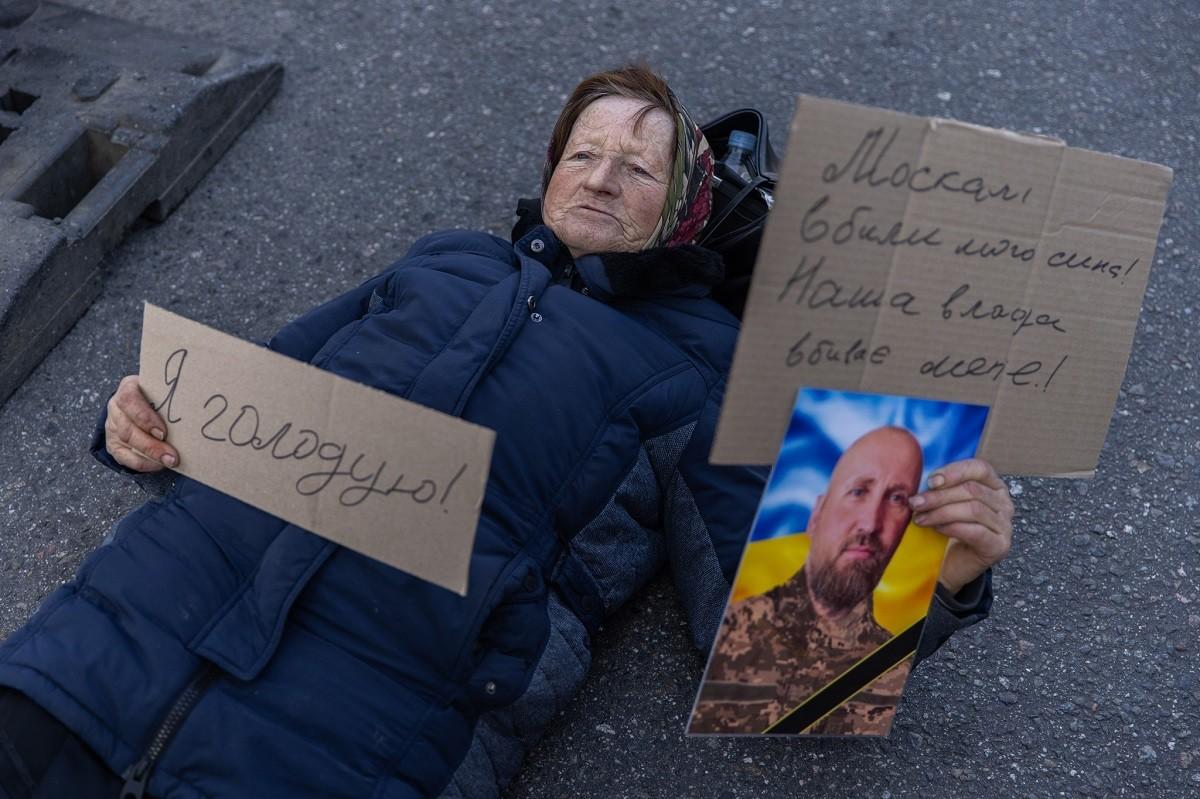 Я голодую!
Москалі
вбили мого сина!
Наша влада
вбиває мене!